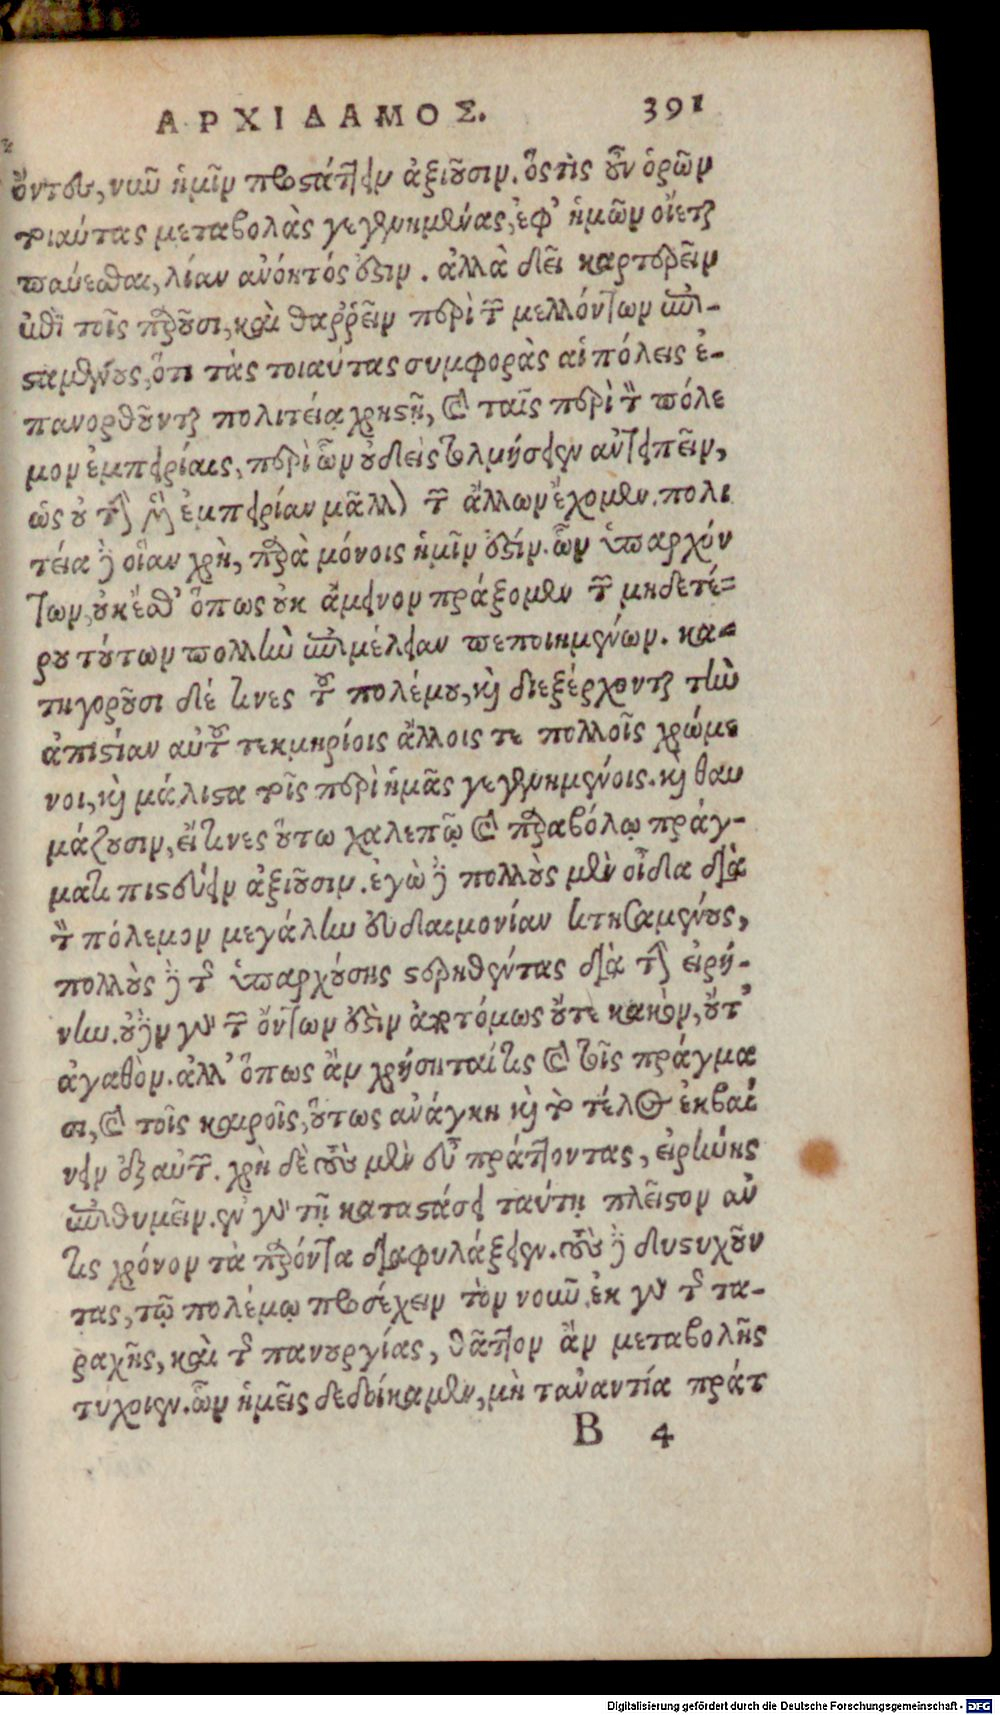 ΑΡΧΙΔΑΜΟΣ. 391
ὄντες, νῦν ἡμῖν προστάττειν ἀξιοῦσιν. ὅστις οὖν ὁρῶν
τοιαύτας μεταβολὰς γεγενημένας, ἐφ' ἡμῶν οἴεται
παύεσθαι, λίαν ἀνόητός ἐστιν. ἀλλὰ δεῖ καρτερεῖν
ἐπὶ τοῖς παροῦσι, καὶ θαῤῥεῖν περὶ τῶν μελλόντων ἐπι-
σταμένους, ὅτι τὰς τοιαύτας συμφορὰς αἱ πόλεις ἐ-
πανορθοῦνται πολιτείᾳ χρηστῇ, καὶ ταῖς περὶ τὸν πόλε
μον ἐμπειρίαις, περὶ ὧν οὐδεὶς τολμήσειεν ἀντειπεῖν,
ὡς οὐ τὴν μὲν ἐμπειρίαν μᾶλλον τῶν ἄλλων ἔχομεν. πολι
τεία δὲ οἵαν χρὴ, παρὰ μόνοις ἡμῖν ἐστίν. ὧν ὑπαρχόν
των, οὐκ ἔσθ' ὅπως οὐκ ἄμεινον πράξομεν τῶν μηδετέ-
ρου τούτων πολλὴν ἐπιμέλειαν πεποιημένων. κα-
τηγοροῦσι δέ τινες τοῦ πολέμου, καὶ διεξέρχονται τὴν
ἀπιστίαν αὐτοῦ τεκμηρίοις ἄλλοις τε πολλοῖς χρώμε
νοι, καὶ μάλιστα τοῖς περὶ ἡμᾶς γεγενημένοις. καὶ θαυ
μάζουσιν, εἴ τινες οὕτω χαλεπῷ καὶ παραβόλῳ πράγ-
ματι πιστεύειν ἀξιοῦσιν. ἐγὼ δὲ πολλοὺς μὲν οἶδα διὰ
τὸν πόλεμον μεγάλην εὐδαιμονίαν κτησαμένους,
πολλοὺς δὲ τῆς ὑπαρχούσης στερηθέντας διὰ τὴν εἰρή-
νην. οὐδὲν γὰρ τῶν ὄντων ἐστὶν ἀποτόμως οὔτε κακὸν, οὔτ'
ἀγαθόν. ἀλλ' ὅπως ἂν χρήσηταί τις καὶ τοῖς πράγμα
σι, καὶ τοῖς καιροῖς, οὕτως ἀνάγκη καὶ τὸ τέλος ἐκβαί
νειν ἐξ αὐτῶν. χρὴ δὲ τοὺς μὲν εὖ πράττοντας, εἰρήνης
ἐπιθυμεῖν. ἐν γὰρ τῇ καταστάσει ταύτῃ πλεῖστον ἄν
τις χρόνον τὰ παρόντα διαφυλάξειεν. τοὺς δὲ δυστυχοῦν
τας, τῷ πολέμῳ προσέχειν τὸν νοῦν. ἐκ γὰρ τῆς τα-
ραχῆς, καὶ τῆς πανουργίας, θᾶττον ἂν μεταβολῆς
τύχοιεν. ὧν ἡμεῖς δεδοίκαμεν, μὴ τἀναντία πράτ
B 4
Digitalisierung gefördert durch die Deutsche Forschungsgemeinschaft - DFG